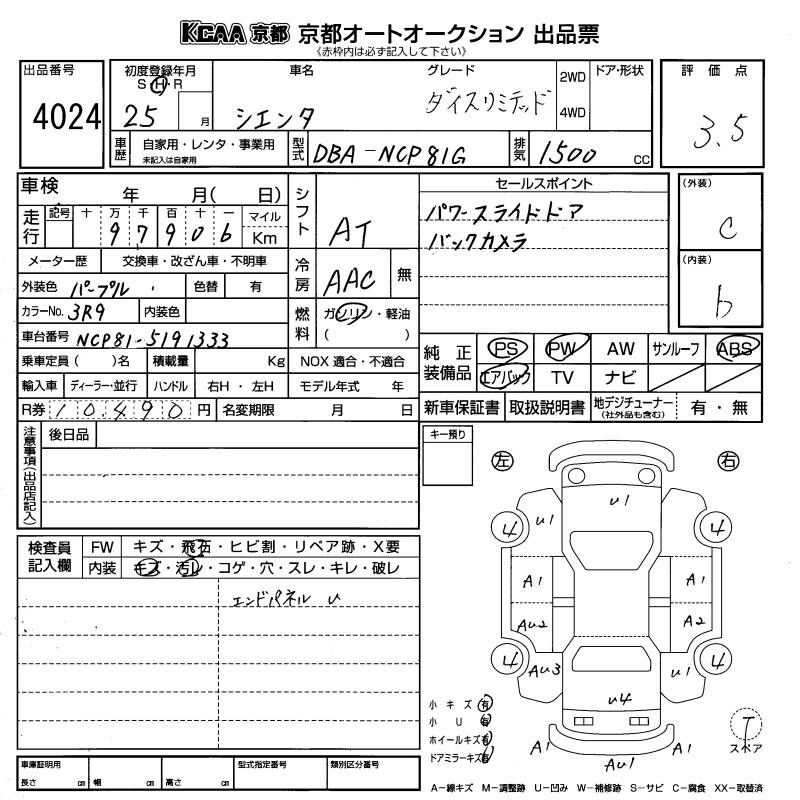 KCAA 京都 京都オートオークション 出品票
《赤枠内は必ず記入して下さい》
出品番号
4024
初度登録年月
S・H・R
25 月
車名
シエンタ
グレード
ダイスリミテッド
2WD
4WD
ドア・形状
評価点
3.5
車歴
自家用・レンタ・事業用
未記入は自家用
型式
DBA-NCP81G
排気
1500 CC
車検 年 月( 日)
走行
記号 十 万 千 百 十 一 マイル
9 7 9 0 6 Km
シフト
AT
メーター歴 交換車・改ざん車・不明車
冷房
AAC 無
外装色 パープル 色替 有
カラーNo. 3R9 内装色
燃料
ガソリン・軽油
( )
車台番号 NCP81-5191333
乗車定員 ( )名 積載量 Kg NOX 適合・不適合
輸入車 ディーラー・並行 ハンドル 右H・左H モデル年式 年
R券 10490 円 名変期限 月 日
セールスポイント
パワースライドドア
バックカメラ
(外装)
C
(内装)
b
純正装備品
PS PW AW サンルーフ ABS
エアバック TV ナビ
新車保証書 取扱説明書 地デジチューナー 有・無
(社外品も含む)
注意事項(出品店記入)
後日品
キー預り
検査員記入欄
FW キズ・飛石・ヒビ割・リペア跡・X要
内装 キズ・汚レ・コゲ・穴・スレ・キレ・破レ
エンドパネル U
左 右
U1
U1
4 4
A1 A1
AU2 A2
4 4
AU3 U1
U4
A1 AU1 A1
T
スペア
小キズ 有
小U 有
ホイールキズ 有
ドアミラーキズ 有
A-線キズ M-調整跡 U-凹み W-補修跡 S-サビ C-腐食 XX-取替済
車庫証明用
長さ cm 幅 cm 高さ cm
型式指定番号
類別区分番号